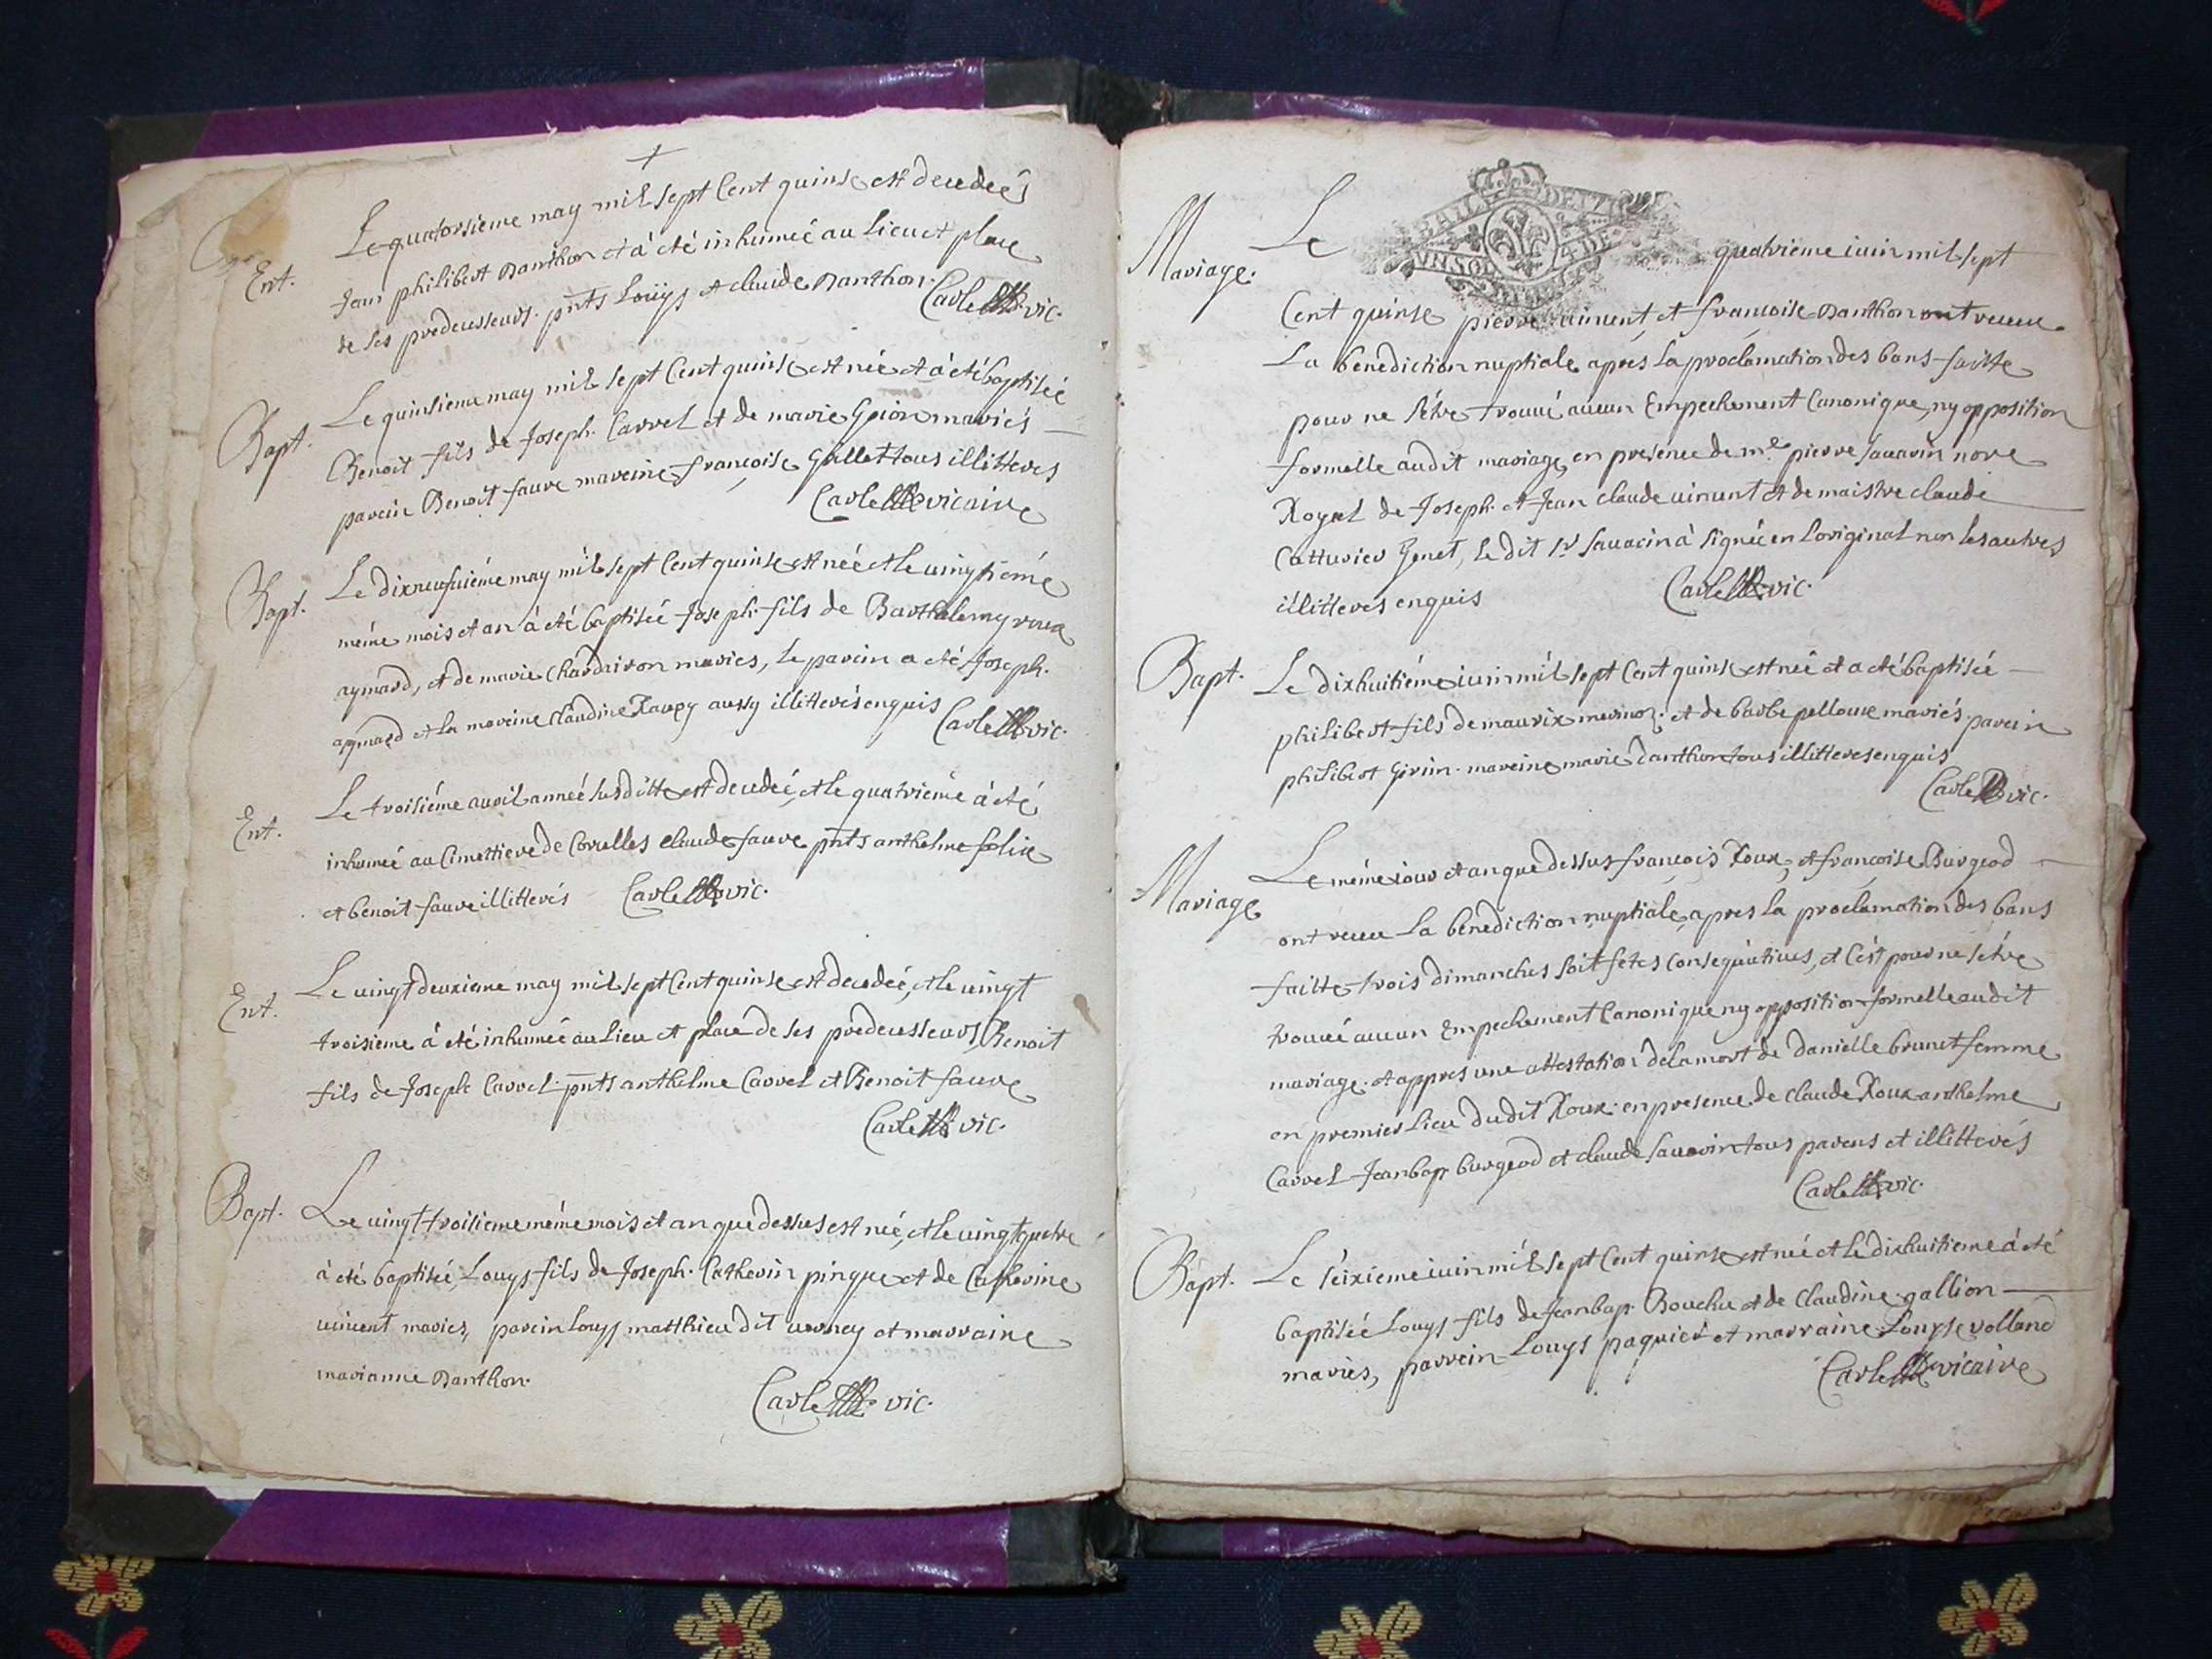 Ent.
Le quatorsieme may mil sept Cent quinse est decedeé
Jean philibert Danthon et à eté inhumeé au lieu et place
de ses predecesseurs. pnts Loüys et claude Danthon.
Carle vic.
Bapt.
Le quinsieme may mil sept Cent quinse est neé et à eté baptiseé
Benoit fils de Joseph. Carrel et de marie Goion mariés
parein Benoit faure mareine françoise Gallet tous illitterés
Carle vicaire
Bapt.
Le dixneufuiéme may mil sept Cent quinse est neé et le uingtiéme
méme mois et an à eté baptiseé Joseph. fils de Barthelemy roux
aymard, et de marie Chardairon mariés, le parein a eté Joseph.
aymard et la mareine claudine Raupy aussy illitterés enquis
Carle vic.
Ent.
Le troisiéme auril anneé susditte est decedeé, et le quatriéme à eté
inhumeé au Cimettiere de Corcelles claude faure pnts anthelme felix
et benoit faure illitterés Carle vic.
Ent.
Le uingt deuxieme may mil sept Cent quinse est decedeé, et le uingt
troisieme à eté inhumeé au lieu et place de ses predecesseurs, Benoit
fils de Joseph Carrel. pnts anthelme Carrel et Benoit faure
Carle vic.
Bapt.
Le uingt-troisieme méme mois et an que dessus est neé, et le uingt quatre
à eté baptiseé Louys fils de Joseph. Catherin pingue et de Catherine
uincent mariés, parein Louys matthieu dit uerney et marraine
marianne Danthon.
Carle vic.
Mariage.
Le quatrieme iuin mil sept
Cent quinse pierre uincent et francoise Danthon ont receu
La benediction nuptiale apres la proclamation des bans faitte
pour ne s'étre trouué aucun Empechement Canonique, ny opposition
formelle audit mariage, en presence de me pierre sauarin nore
Royal de Joseph. et Jean claude uincent et de maistre claude
Cattusier Genet, le dit sr sauarin à signeé en l'original non les autres
illitterés enquis
Carle vic.
Bapt.
Le dixhuitiéme iuin mil sept Cent quinse est neé et a eté baptiseé
philibert fils de maurix mermoz. et de barbe pelloux mariés. parein
philibert Girin. mareine marie danthon tous illitteres enquis
Carle vic.
Mariage
Le méme iour et an que dessus francois Roux, et francoise Burgeod
ont receu la benediction nuptiale, apres la proclamation des bans
faitte trois dimanches soit fetes consequutiues, et c'ést pour ne s'etre
trouué aucun Empechement Canonique ny opposition formelle audit
mariage. et appres une attestation de la mort de danielle brunet femme
en premier lieu dudit Roux. en presence. de claude Roux anthelme
Carrel Jeanbap burgeod et claude sauarin tous parens et illitterés
Carle vic.
Bapt.
Le séixieme iuin mil sept Cent quinse est neé et le dixhuitieme à eté
baptiseé Louys fils de Jeanbap. Bouchu et de Claudine gallion
mariés, parrein Louys paquier et marraine Louyse volland
Carle vicaire